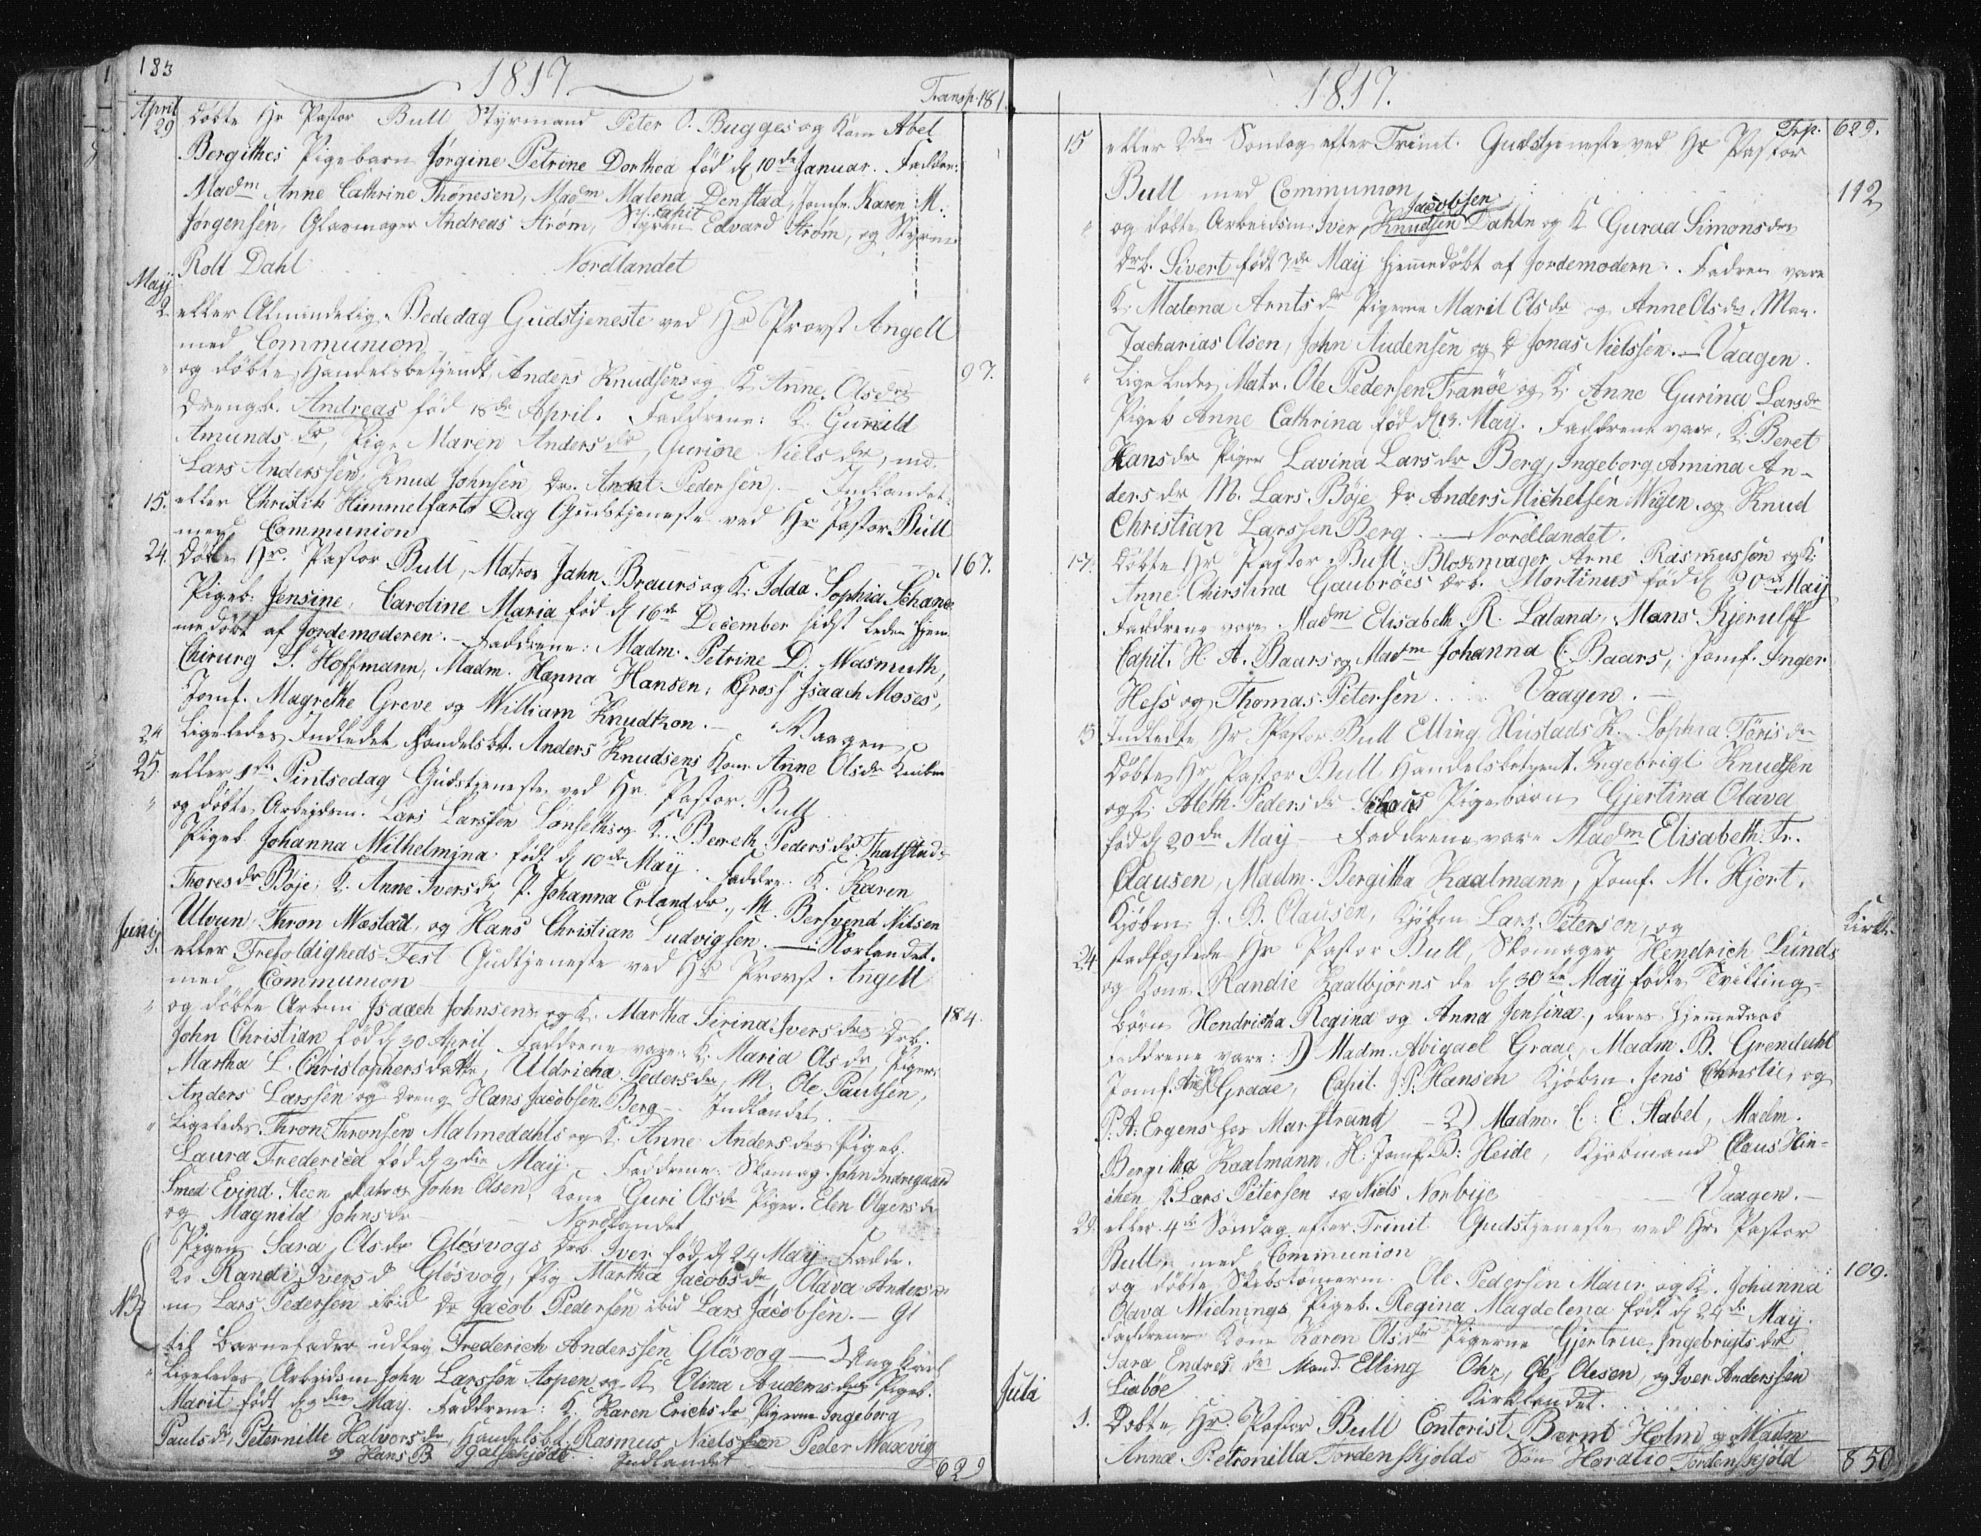 183
1817.
Transp. 181.
April 29 døbte Hr Pastor Bull Styrmand Peter O. Bugges og Kone Abel
Bergithes Pigebarn Jørgine Petrine Dorthea fød d 10de Januar. Faddere:
Madm Anne Cathrine Thønesen, Madm Malena Denstad, Jomfr. Karen M.
Jørgensen, Glasmager Andreas Strøm, Capit Edvard Strøm, og Styrm.
Rolt Dahl Nordlandet
May
2. eller Almindelig Bededag Gudstjeneste ved Hr Provst Angell
med Communion 97.
" og døbte Handelsbetjendt Anders Knudsens og K. Anne Olsdrs
Drengb. Andreas fød 18de April. Faddrene: K. Gunild
Amundsdr, Pige Maren Andersdr, Gurine Nielsdr, md.
Lars Anderssen, Knud Johnsen Dr. Arnt Pedersen. - Indlandet
15. eller Christi Himmelfarts Dag Gudstjeneste ved Hr Pastor Bull
med Communion 167.
24. Døbte Hr. Pastor Bull, Matros Jahn Braurs og K: Idda Sophia Schane
Pigeb: Jensine Caroline Maria fød d 16de December sidst leden hjem
medøbt af Jordemoderen. - Faddrene: Madm. Petrine D. Wasmuth,
Chirurg S. Hoffmann, Madm. Hanna Hansen, Gross Isaach Moses,
Jomf. Magrethe Greve og William Knudtzon. - Vaagen
24 Ligeledes Indledet Handelsbt. Anders Knudsens Kone Anne Olsdr
25 eller 1ste Pintsedag Gudstjeneste ved Hr. Pastor Bull
" og døbte Arbejdsm. Lars Larssen Lonseths og K. Bereth Pedersdr Thalstad
Pigeb Johanna Wilhelmina født d 10de May. Faddre. K. Karen
Thoresdr Bøje, K. Anne Iversdr, P. Johanna Erlandsdr, M. Bersvend Nilsen
Ulvun, Thron Mæstad, og Hans Christian Ludvigsen. - Norlandet.
Junij
1. eller Trefoldigheds-Fest Gudtjeneste ved Hr Provst Angell
med Communion 184.
" og døbte Arbm Isaach Johnsens og K. Martha Sirina Iversdrs Drb.
John Christian fød d 30 April. Faddrene vare: K. Maria Olsdr, Piger:
Martha L. Christophersdatter, Uldricha Pedersdr, M. Ole Paulsen,
Anders Larssen og Dreng Hans Jacobsen Berg - Indlandet
" Ligeledes Thron Thronsen Malmedahls og K. Anne Andersdrs Pigeb.
Laura Frederica fød d 3die May. - Faddrene: Skomag. John Indregaard
Smed Evind Steen Matros John Olsen, Kone Guri Olsdr Piger. Elen Olgersdr
og Magnild Johnsdr Nordlandet
NB Pigen Sara Olsdr Gløsvogs Drb Iver fød d 24 May. Fadde.
K. Randi Iversd Gløsvog, Pig Martha Jacobsdr, Olava Andersdr
m Lars Pedersen ibid Dr Jacob Pedersen ibid Lars Jacobsen. -
til Barnefader udlag Frederich Anderssen Gløsvog - Ung karl
" Ligeledes Arbeidsm John Larssen Aspen og K. Olina Audensdrs Pigeb.
Marit født d May. Faddrene: K. Karen Erichsdr Pigerne Ingeborg
Paulsdr, Peternille Halvorsdr, Handelsbt. Rasmus Nielssen Peder Waxvig
og Hans B Indlandet
629
1817.
Trp. 629.
15 eller 2den Søndag efter Trinit. Gudstjeneste ved Hr Pastor
Bull med Communion 112
Jacobsen
" og døbte Arbeidsm. Iver Knudsen Dahle og K Guraa Simonsdrs
Drb. Sivert født 7de May hjemmedøbt af Jordemodern. Fadren vare
K. Malena Arntsdr Pigerne Marit Olsdr og Anne Olsdr, Man.
Zacharias Olsen, John Audensen og Jonas Nielssen. - Vaagen.
" Ligeledes Matr. Ole Pedersen Tranøe og K. Anne Gurina Larsdr
Pigeb Anne Cathrina fød d 13. May. Faddrene vare. K. Beret
Hansdr Piger Lavina Larsdr Berg, Ingeborg Amina An-
dersdr M. Lars Bøje Dr Anders Michelsen Wigen og Knud
Christian Larssen Berg. - Nordlandet.
17. Døbte Hr Pastor Bull Blokmager Arne Rasmussen og K:
Anne Christina Gaubrøes Drb. Mortinus fød d 20de May
Faddrene vare Madm Elisabeth R. Laland, Mons Kjerulff
Capit. H. A. Baars og Madm Johanna C. Baars, Jomf. Inger
Hess og Thomas Petersen Vaagen. -
Indledte Hr Pastor Bull Elling Hustads K. Sophia Tørisdr
Døbte Hr Pastor Bull Handelsbetjent Ingebrigt Knudtsen
og K. Aleth Pedersdr Pigebarn Gjertina Olava
fød d 20de May - Faddrene vare Madm Elisabeth Fr.
Clausen, Madm. Bergitha Kaalmann, Jomf. M. Hjort.
Kjøbm. J. B. Clausen, Kjøbm Lars Peterson, og Kirkl.
24 Stadfæstede Hr Pastor Bull, Skomager Hendrich Lunds
og Kone Randie Kaalbjørns de d 30te May fødte Tvilling-
børn Hendricha Regina og Anna Jensina, deres Hjemmedaab
Faddrene vare: 1) Madm. Abigael Graae, Madm. B. Grendahl
Jomf. Graae, Capit. J. P. Hansen Kjøbm. Jens Christie, og
P. A. Ergens hos Marstrand - 2) Madm. C. E. Stabel, Madm.
Bergitha Kaalmann, H. Jomf. B: Heide, Kjøbmand Claus Hin-
ichen K. Lars Petersen og Niels Norbye - Vaagen. -
29. eller 4de Søndag efter Trinit Gudstjeneste ved Hr. Pastor
Bull med Communion 109.
" og døbte Skibstømerm. Ole Pedersen Maur og K. Johanna
Olava Widnings Pigeb. Regina Magdelena født d 24de May.
Faddrene Kone Karen Olsdr Pigerne Gjertrue Ingebrigtsdr
Sara Endresdr Mand. Elling Ole Olesen, og Iver Anderssen
Liabøe Kirklandet.
Juli
1. Døbte Hr. Pastor Bull Contorist Bernt Holm og Madm
Anna Petronilla Tordenskjolds Søn Horatio Tordenskjold 850